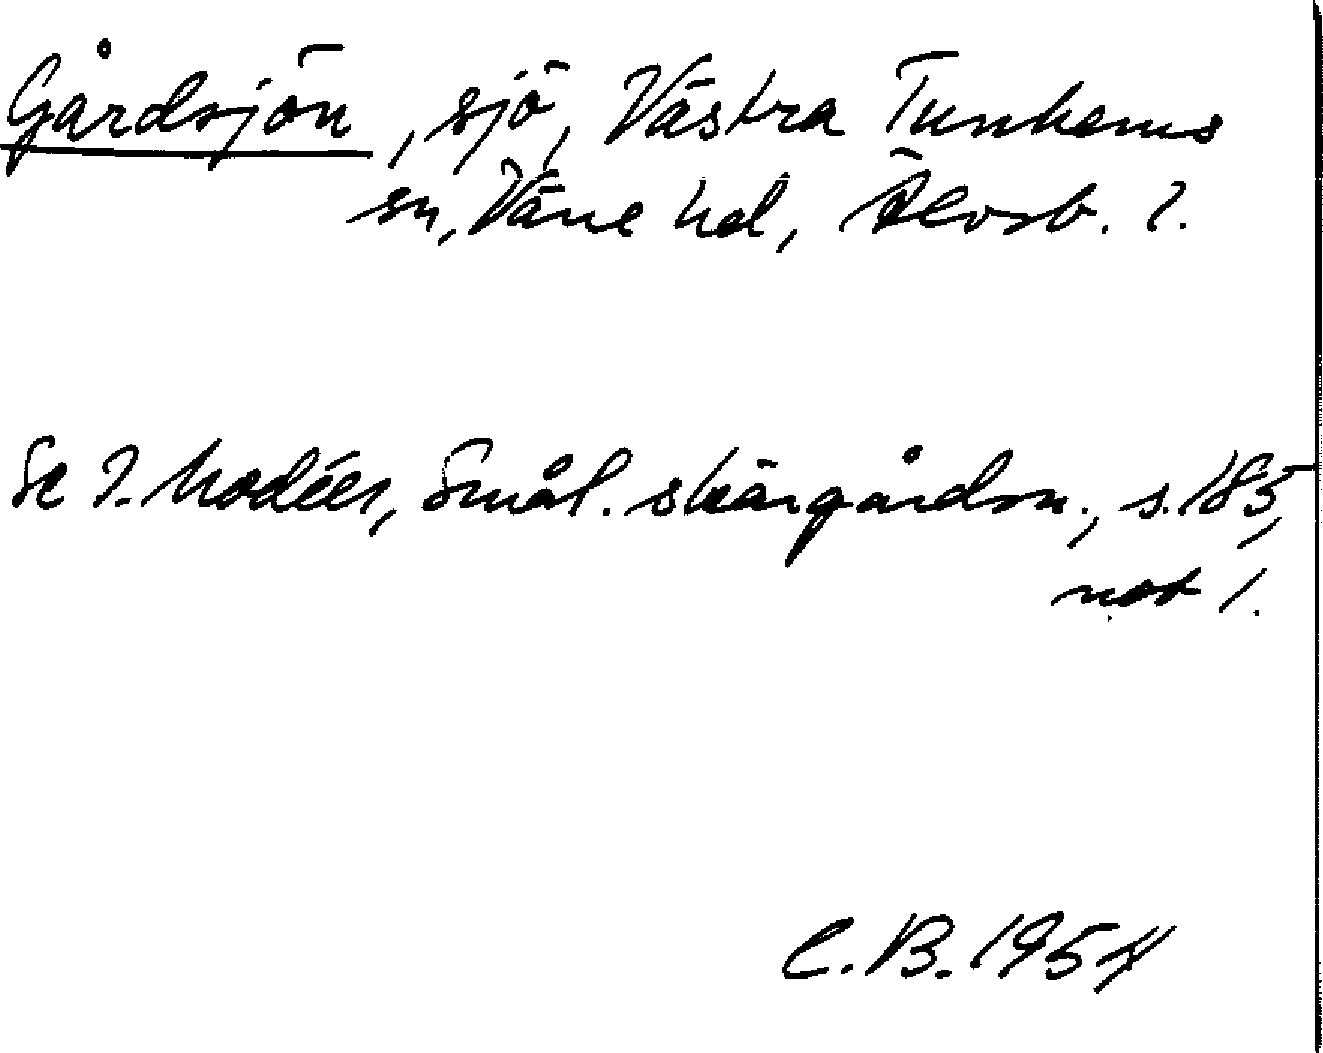 Gårdsjön, sjö, Västra Tunhems
sn, Väne hd, Älvsb. l.
Se I. Modéer, Smål. skärgårdsn., s. 185,
not 1.
C.B. 1954